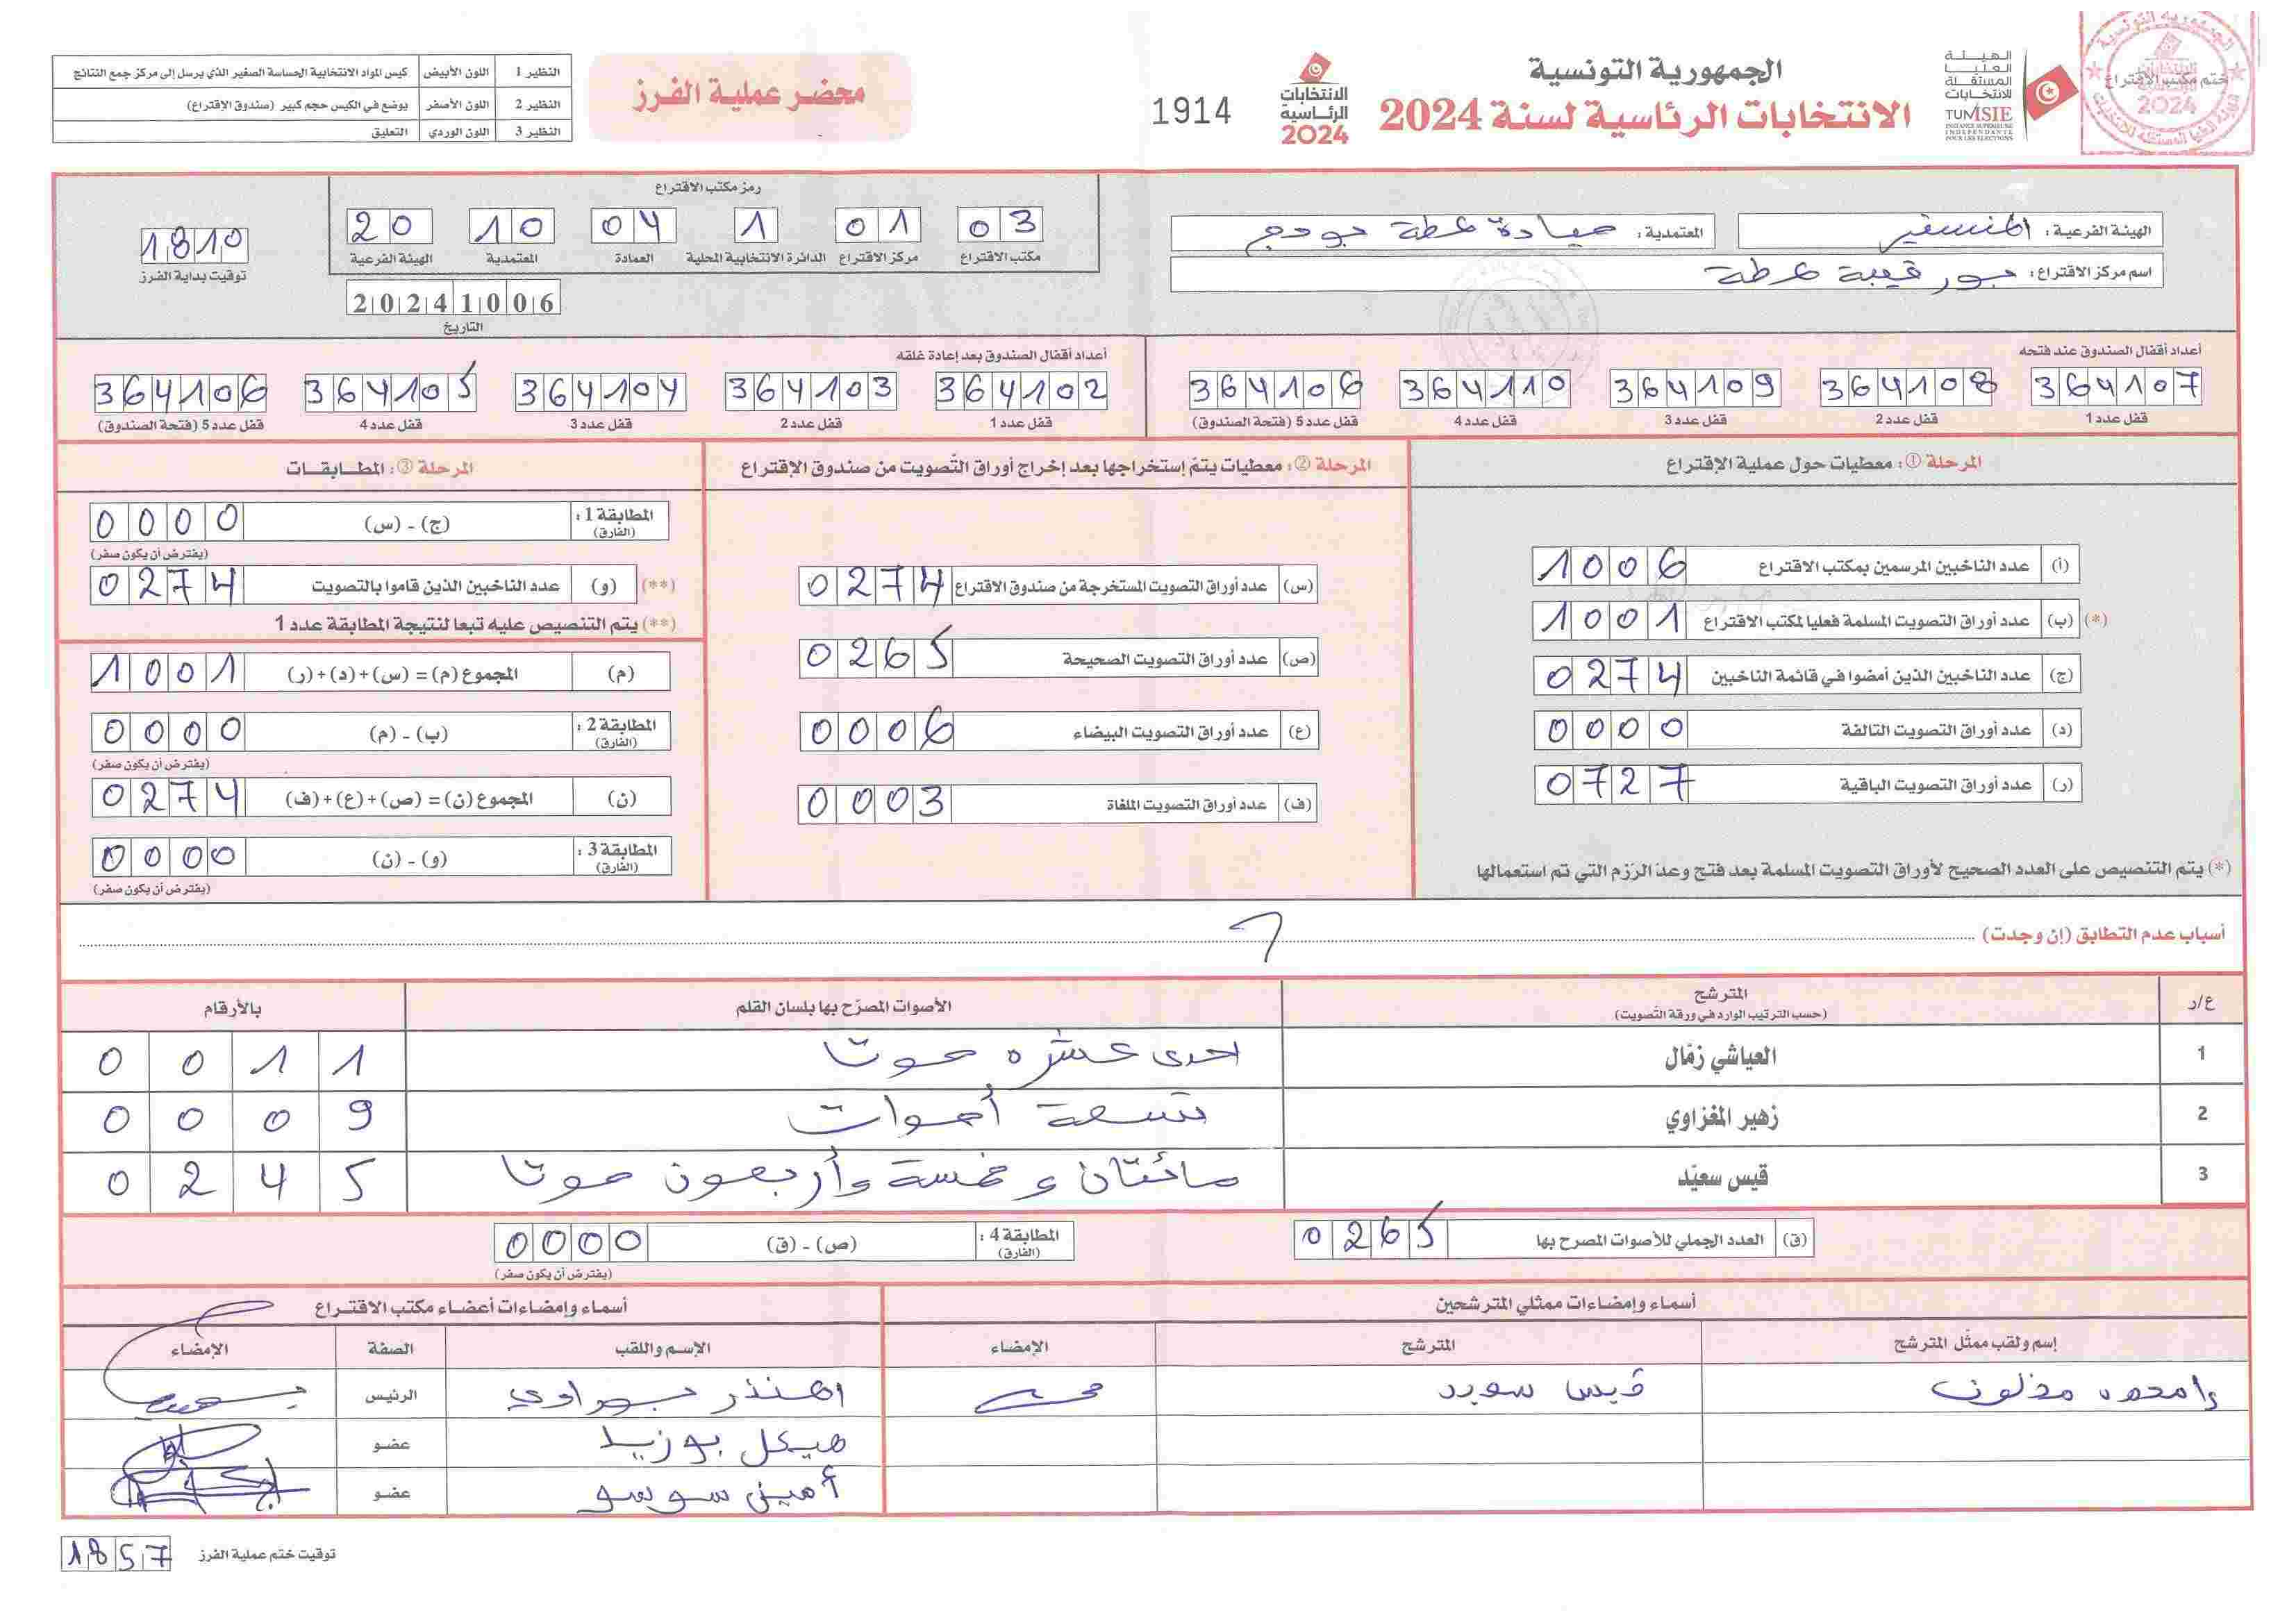 الجمهورية التونسية
الانتخابات الرئاسية لسنة 2024
الهيئة
العليا
المستقلة
للانتخابات
TUNISIE
INSTANCE SUPERIEURE
INDEPENDANTE
POUR LES ELECTIONS
ختم مكتب الاقتراع
الانتخابات
الرئاسية
2024
1914
محضر عملية الفرز
النظير 1 اللون الأبيض كيس المواد الانتخابية الحساسة الصغير الذي يرسل إلى مركز جمع النتائج
النظير 2 اللون الأصفر يوضع في الكيس حجم كبير (صندوق الاقتراع)
النظير 3 اللون الوردي التعليق
الهيئة الفرعية: المنستير
المعتمدية: صيادة لمطة بوحجر
اسم مركز الاقتراع: بورقيبة لمطة
رمز مكتب الاقتراع
03 01 1 04 10 20
مكتب الاقتراع مركز الاقتراع الدائرة الانتخابية المحلية العمادة المعتمدية الهيئة الفرعية
20241006
التاريخ
1810
توقيت بداية الفرز
أعداد أقفال الصندوق عند فتحه
364107 364108 364109 364110 364106
قفل عدد 1 قفل عدد 2 قفل عدد 3 قفل عدد 4 قفل عدد 5 (فتحة الصندوق)
أعداد أقفال الصندوق بعد إعادة غلقه
364102 364103 364104 364105 364106
قفل عدد 1 قفل عدد 2 قفل عدد 3 قفل عدد 4 قفل عدد 5 (فتحة الصندوق)
المرحلة ①: معطيات حول عملية الإقتراع
(أ) عدد الناخبين المرسمين بمكتب الاقتراع 1006
(*) (ب) عدد أوراق التصويت المسلمة فعليا لمكتب الاقتراع 1001
(ج) عدد الناخبين الذين أمضوا في قائمة الناخبين 0274
(د) عدد أوراق التصويت التالفة 0000
(ر) عدد أوراق التصويت الباقية 0727
(*) يتم التنصيص على العدد الصحيح لأوراق التصويت المسلمة بعد فتح وعد الرزم التي تم استعمالها
المرحلة ②: معطيات يتم إستخراجها بعد إخراج أوراق التّصويت من صندوق الإقتراع
(س) عدد أوراق التصويت المستخرجة من صندوق الاقتراع 0274
(ص) عدد أوراق التصويت الصحيحة 0265
(ع) عدد أوراق التصويت البيضاء 0006
(ف) عدد أوراق التصويت الملغاة 0003
المرحلة ③: المطابقات
المطابقة 1: (الفارق) (ج) - (س) 0000
(يفترض أن يكون صفر)
(**) (و) عدد الناخبين الذين قاموا بالتصويت 0274
(**) يتم التنصيص عليه تبعا لنتيجة المطابقة عدد 1
(م) المجموع (م) = (س) + (د) + (ر) 1001
المطابقة 2: (الفارق) (ب) - (م) 0000
(يفترض أن يكون صفر)
(ن) المجموع (ن) = (ص) + (ع) + (ف) 0274
المطابقة 3: (الفارق) (و) - (ن) 0000
(يفترض أن يكون صفر)
أسباب عدم التطابق (إن وجدت)
ع/ر المترشح (حسب الترتيب الوارد في ورقة التصويت) الأصوات المصرّح بها بلسان القلم بالأرقام
1 العياشي زمّال احدى عشره صوتا 0011
2 زهير المغزاوي تسعة أصوات 0009
3 قيس سعيّد مائتان و خمسة وأربعون صوتا 0245
(ق) العدد الجملي للأصوات المصرح بها 0265
المطابقة 4: (الفارق) (ص) - (ق) 0000
(يفترض أن يكون صفر)
أسماء وإمضاءات ممثلي المترشحين
إسم ولقب ممثّل المترشح المترشح الإمضاء
مخلوف قيس سعيد
أسماء وإمضاءات أعضاء مكتب الاقتراع
الإسم واللقب الصفة الإمضاء
المنذر الرئيس
هيكل بوزيد عضو
أمين سوسو عضو
توقيت ختم عملية الفرز 1857